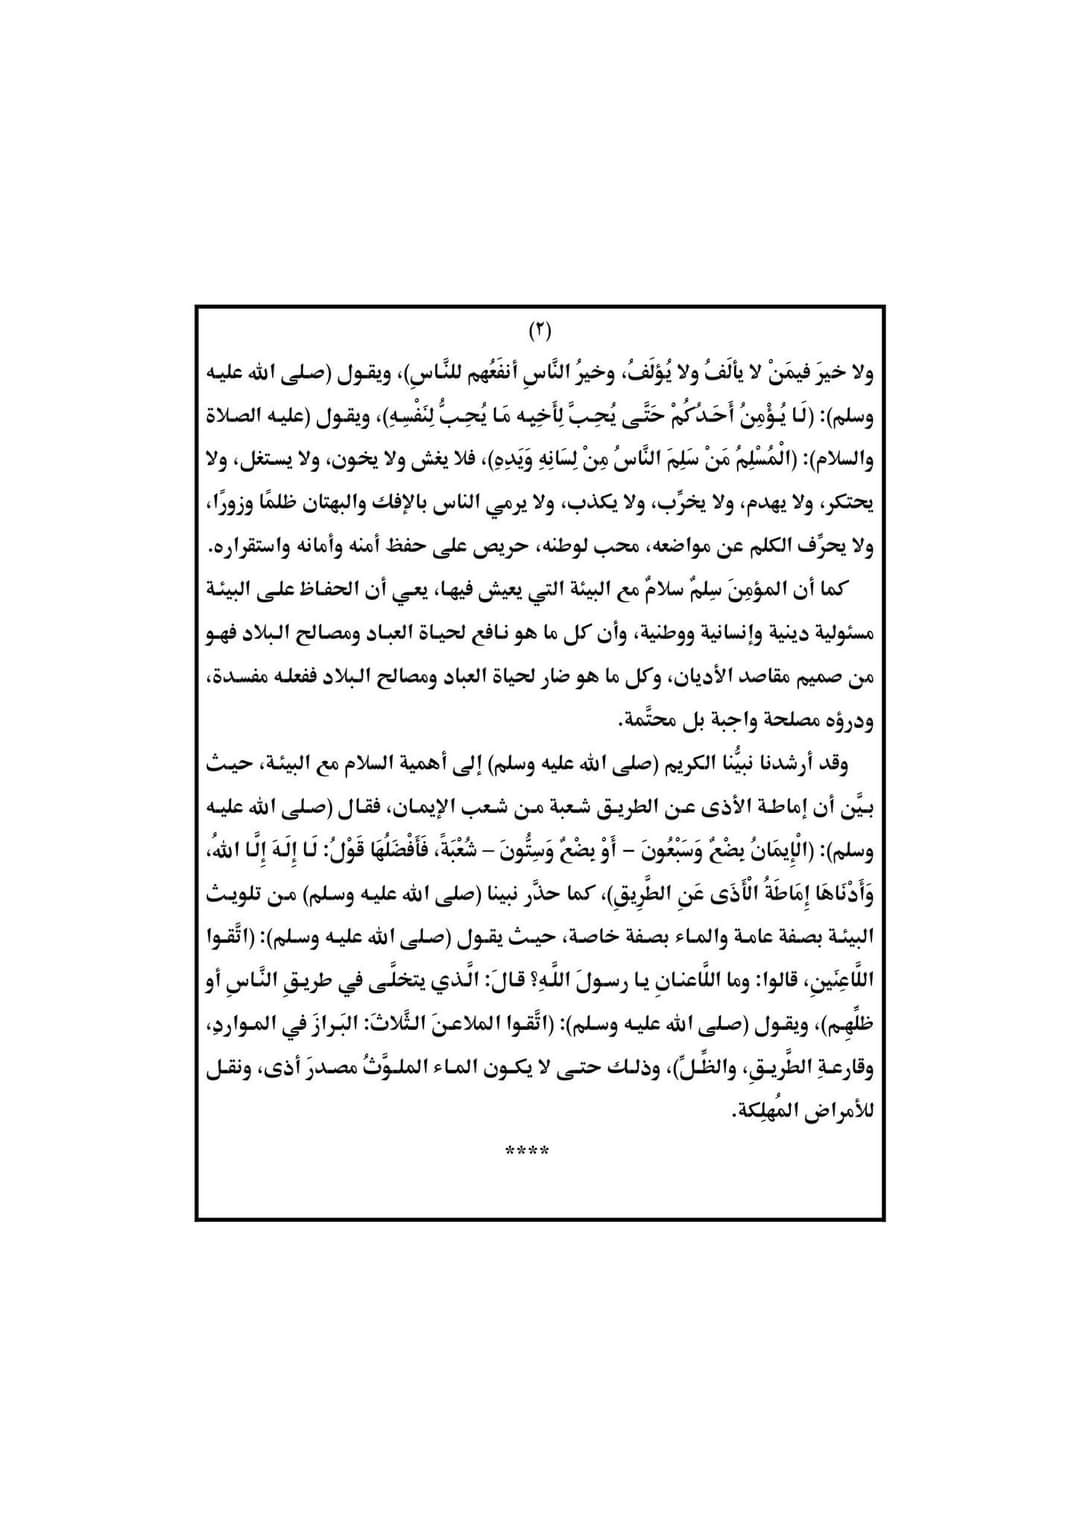 (٢)
ولا خيرَ فيمَنْ لا يألَفُ ولا يُؤلَفُ، وخيرُ النَّاسِ أنفَعُهم للنَّاسِ)، ويقول (صلى الله عليه
وسلم): (لَا يُؤْمِنُ أَحَدُكُمْ حَتَّى يُحِبَّ لِأَخِيه مَا يُحِبُّ لِنَفْسِهِ)، ويقول (عليه الصلاة
والسلام): (الْمُسْلِمُ مَنْ سَلِمَ النَّاسُ مِنْ لِسَانِهِ وَيَدِهِ)، فلا يغش ولا يخون، ولا يستغل، ولا
يحتكر، ولا يهدم، ولا يخرِّب، ولا يكذب، ولا يرمي الناس بالإفك والبهتان ظلمًا وزورًا،
ولا يحرِّف الكلم عن مواضعه، محب لوطنه، حريص على حفظ أمنه وأمانه واستقراره.
كما أن المؤمِنَ سِلمٌ سلامٌ مع البيئة التي يعيش فيها، يعي أن الحفاظ على البيئة
مسئولية دينية وإنسانية ووطنية، وأن كل ما هو نافع لحياة العباد ومصالح البلاد فهو
من صميم مقاصد الأديان، وكل ما هو ضار لحياة العباد ومصالح البلاد ففعله مفسدة،
ودرؤه مصلحة واجبة بل محتَّمة.
وقد أرشدنا نبيُّنا الكريم (صلى الله عليه وسلم) إلى أهمية السلام مع البيئة، حيث
بيَّن أن إماطة الأذى عن الطريق شعبة من شعب الإيمان، فقال (صلى الله عليه
وسلم): (الْإِيمَانُ بِضْعٌ وَسَبْعُونَ – أَوْ بِضْعٌ وَسِتُّونَ – شُعْبَةً، فَأَفْضَلُهَا قَوْلُ: لَا إِلَهَ إِلَّا اللهُ،
وَأَدْنَاهَا إِمَاطَةُ الْأَذَى عَنِ الطَّرِيقِ)، كما حذَّر نبينا (صلى الله عليه وسلم) من تلويث
البيئة بصفة عامة والماء بصفة خاصة، حيث يقول (صلى الله عليه وسلم): (اتَّقوا
اللَّاعِنَينِ، قالوا: وما اللَّاعنانِ يا رسولَ اللَّهِ؟ قالَ: الَّذي يتخلَّى في طريقِ النَّاسِ أو
ظلِّهِم)، ويقول (صلى الله عليه وسلم): (اتَّقوا الملاعنَ الثَّلاثَ: البَرازَ في المواردِ،
وقارعةِ الطَّريقِ، والظِّلِّ)، وذلك حتى لا يكون الماء الملوَّثُ مصدرَ أذى، ونقل
للأمراض المُهلِكة.
****